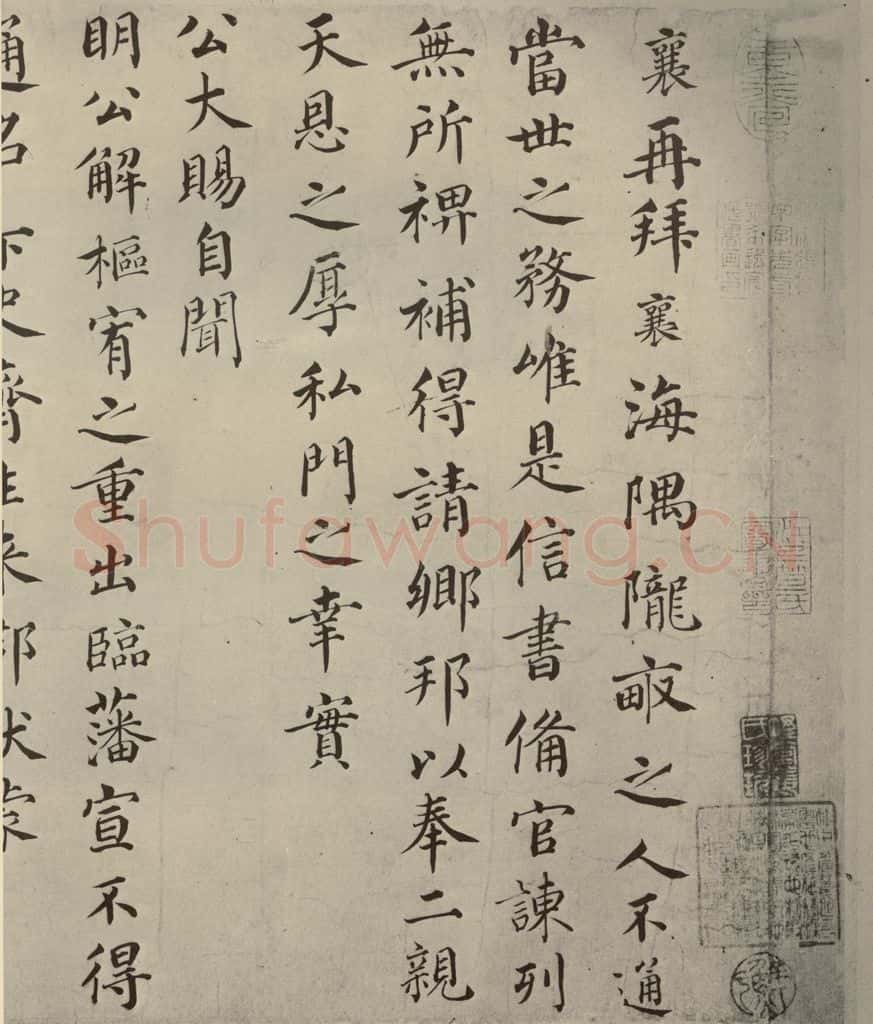 襄再拜襄海隅隴畝之人不通
當世之務唯是信書備官諫列
無所裨補得請鄉邦以奉二親
天恩之厚私門之幸實
公大賜自聞
明公解樞宥之重出臨藩宣不得
通名 下史齊生来郡伏蒙
Shufawang.CN